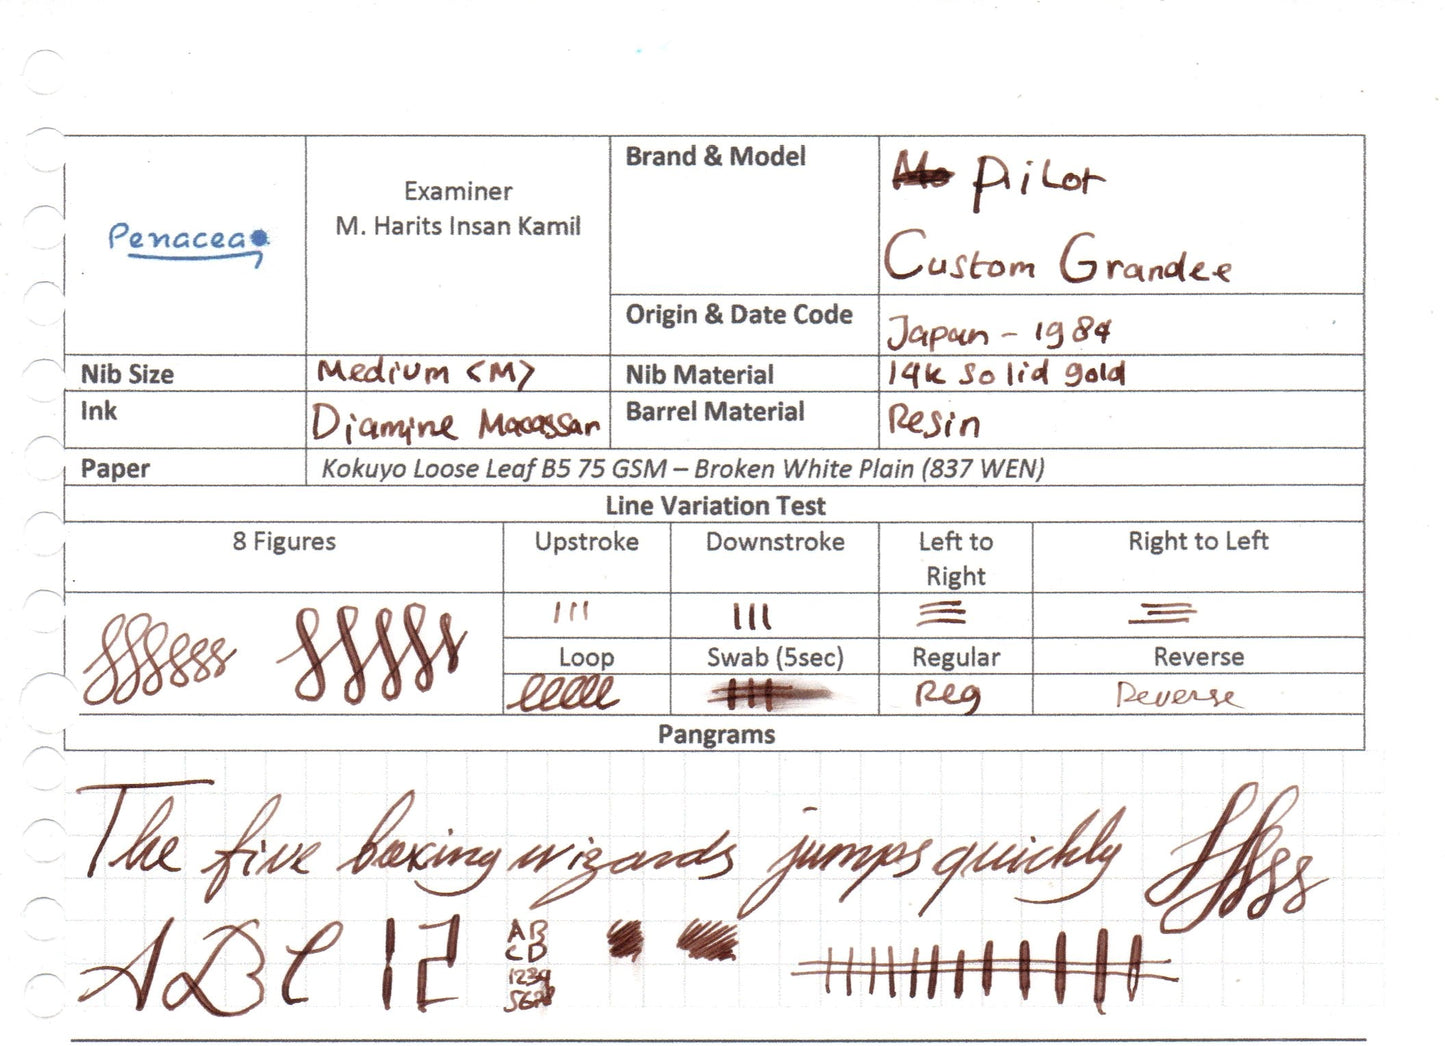 Penacea
Examiner
M. Harits Insan Kamil
Brand & Model
Pilot
Custom Grandee
Origin & Date Code
Japan - 1984
Nib Size
Medium <M>
Nib Material
14k Solid gold
Ink
Diamine Macassar
Barrel Material
Resin
Paper
Kokuyo Loose Leaf B5 75 GSM – Broken White Plain (837 WEN)
Line Variation Test
8 Figures
Upstroke
Downstroke
Left to
Right
Right to Left
Loop
Swab (5sec)
Regular
Reverse
Reg
Reverse
Pangrams
The five boxing wizards jumps quickly
ABC 12
AB
CD
1234
5678